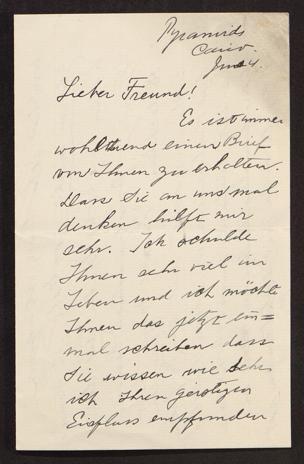 Pyramids
Cairo.
Jun 4.
Lieber Freund!
Es ist immer
wohltuend einen Brief
von Ihnen zu erhalten.
Dass Sie an uns mal
denken hilft mir
sehr. Ich schulde
Ihnen sehr viel im
Leben und ich möchte
Ihnen das jetzt ein=
mal schreiben dass
Sie wissen wie sehr
ich Ihren geistigen
Einfluss empfunden